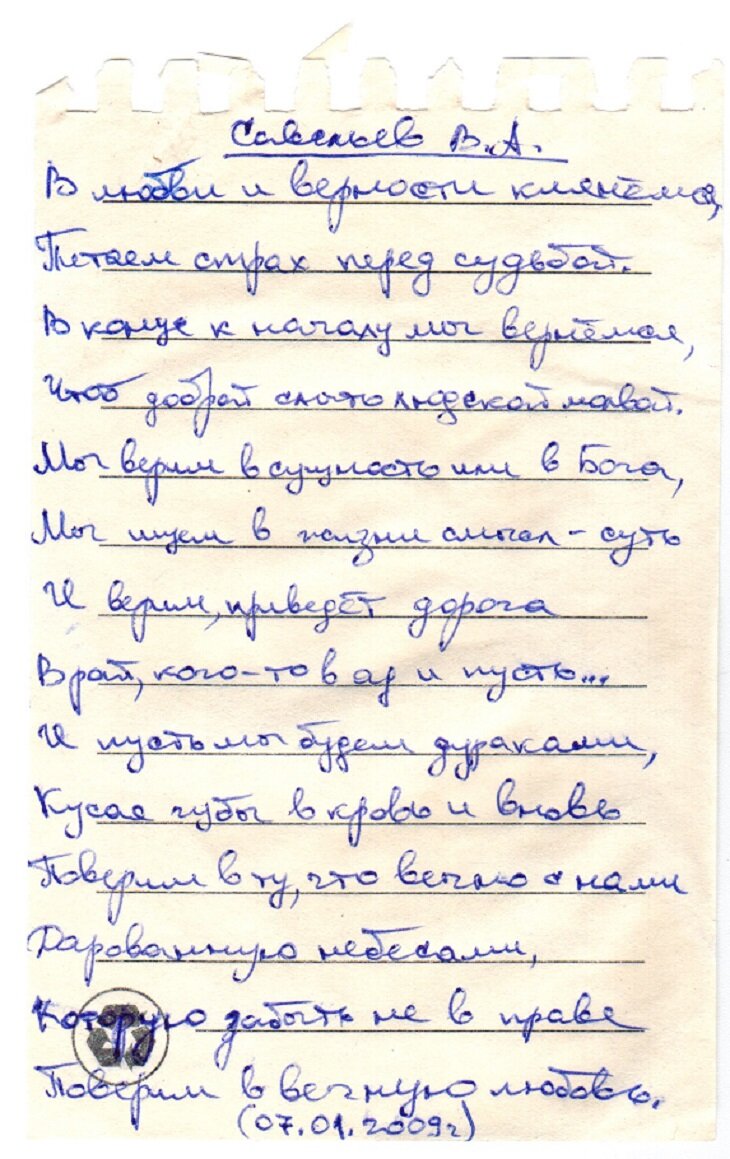 Савельев В.А.
В любви и верности клянёмся,
Питаем страх перед судьбой.
В конце к началу мы вернёмся,
Чтоб доброй слыть людской молвой.
Мы верим в сущность или в Бога,
Мы ищем в жизни смысл - суть
И верим, приведёт дорога
В рай, кого-то в ад и пусть...
И пусть мы будем дураками,
Кусая губы в кровь и вновь
Поверим в ту, что вечно с нами
Дарованную небесами,
Которую забыть не в праве
Поверим в вечную любовь.
(07.01.2009г)